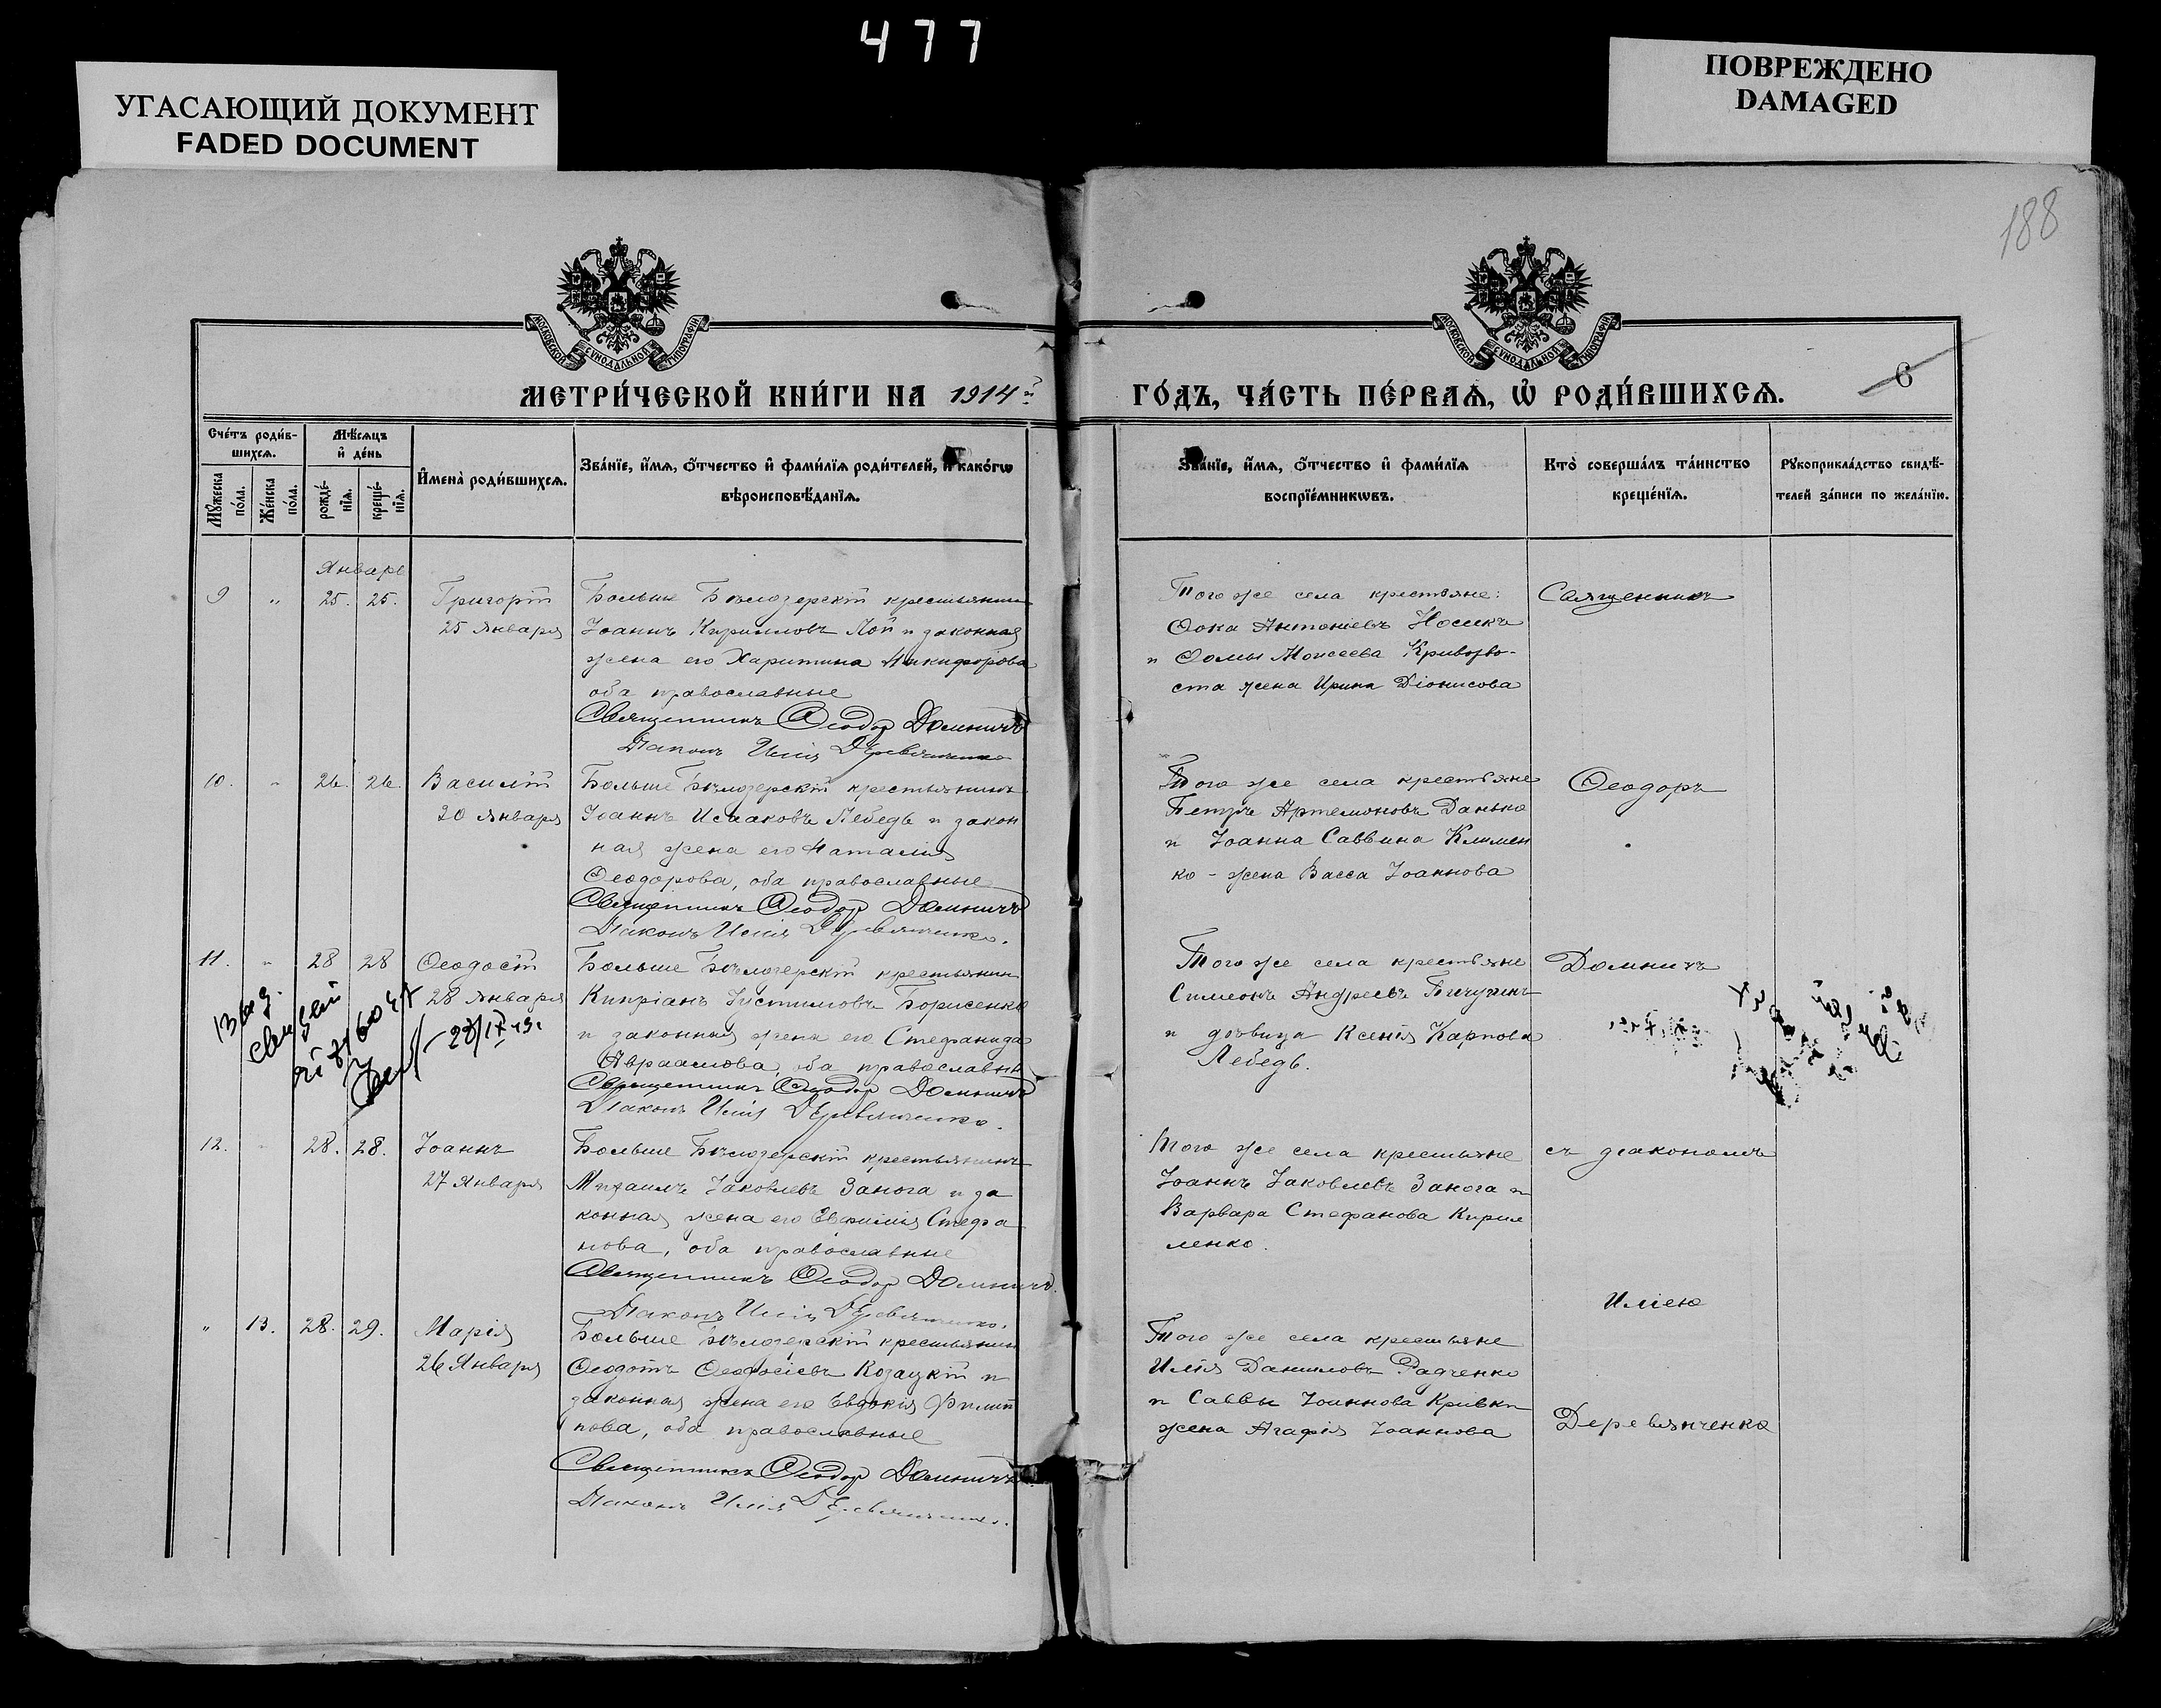 477
УГАСАЮЩИЙ ДОКУМЕНТ
FADED DOCUMENT
ПОВРЕЖДЕНО
DAMAGED
188
МОСКОВСКОЙ СѴНОДАЛЬНОЙ ТИПОГРАФІИ
МОСКОВСКОЙ СѴНОДАЛЬНОЙ ТИПОГРАФІИ
МЕТРИ́ЧЕСКОЙ КНИ́ГИ НА 1914 й
ГО́ДЪ, ЧА́СТЬ ПЕ́РВАѦ, Ѡ҆ РОДИ́ВШИХСѦ.
6
Сче́тъ роди́в-
шихсѧ.
Мꙋ́жеска по́ла.
Же́нска по́ла.
Мѣ́сѧцъ
и҆ де́нь
рожде́-
нїѧ.
креще́-
нїѧ.
И҆мена̀ роди́вшихсѧ.
Зва́нїе, и҆́мѧ, ѻ҆́тчество и҆ фами́лїѧ роди́телей, и҆ како́гѡ
вѣроисповѣ́данїѧ.
Зва́нїе, и҆́мѧ, ѻ҆́тчество и҆ фами́лїѧ
воспрїе́мникѡвъ.
Кто̀ соверша́лъ та́инство
креще́нїѧ.
Рꙋкоприкла́дство свидѣ́-
телей за́писи по жела́нїю.
Январь
9 " 25. 25. Григорій
25 Января
Больше Бѣлозерскій крестьянинъ
Іоаннъ Кирилловъ Лой и законная
жена его Харитина Никифорова
оба православные
Священникъ Ѳеодор Домничъ
Діаконъ Илія Деревянченко
Того же села крестьяне:
Ѳока Антоніевъ Носикъ
и Ѳомы Моисеева Кривохво-
ста жена Ирина Діонисова
Священникъ
10. " 26. 26. Василій
20 Января
Больше Бѣлозерскій крестьянинъ
Іоаннъ Исааковъ Лебедь и закон
ная жена его Наталія
Ѳеодорова, оба православные
Священникъ Ѳеодор Домничъ
Діаконъ Илія Деревянченко.
Того же села крестьяне
Петръ Артемоновъ Данько
и Іоанна Саввина Климен
ко - жена Васса Іоаннова
Ѳеодоръ
11. " 28 28 Ѳеодосій
28 Января
Больше Бѣлозерскій крестьянин
Кипріанъ Іустиновъ Борисенко
и законная жена его Стефанида
Авраамова, оба православные
Священникъ Ѳеодор Домничъ
Діаконъ Илія Деревянченко.
Того же села крестьяне
Симеонъ Андреевъ
и дѣвица Ксенія Карпова
Лебедь.
Домничъ
12. " 28. 28. Іоаннъ
27 Января
Больше Бѣлозерскій крестьянинъ
Михаилъ Іаковлевъ Занога и за
конная жена его Евфимія Стефа
нова, оба православные
Священникъ Ѳеодор Домничъ.
Діаконъ Илія Деревянченко.
Того же села крестьяне
Іоаннъ Іаковлевъ Занога и
Варвара Стефанова Кирил
ленко.
съ діакономъ
Иліею
" 13. 28. 29. Марія
26 Января
Больше Бѣлозерскій крестьянин
Ѳеодотъ Ѳеодосіевъ Козацкій и
законная жена его Евдокія Филип
пова, оба православные
Священникъ Ѳеодор Домничъ
Діаконъ Илія Деревянченко.
Того же села крестьяне
Илія Даниловъ Радченко
и Саввы Іоаннова Кривки
жена Агафія Іоаннова
Деревянченко